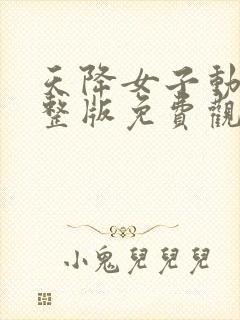 天降女子動
整版免費觀
小鬼兒兒兒